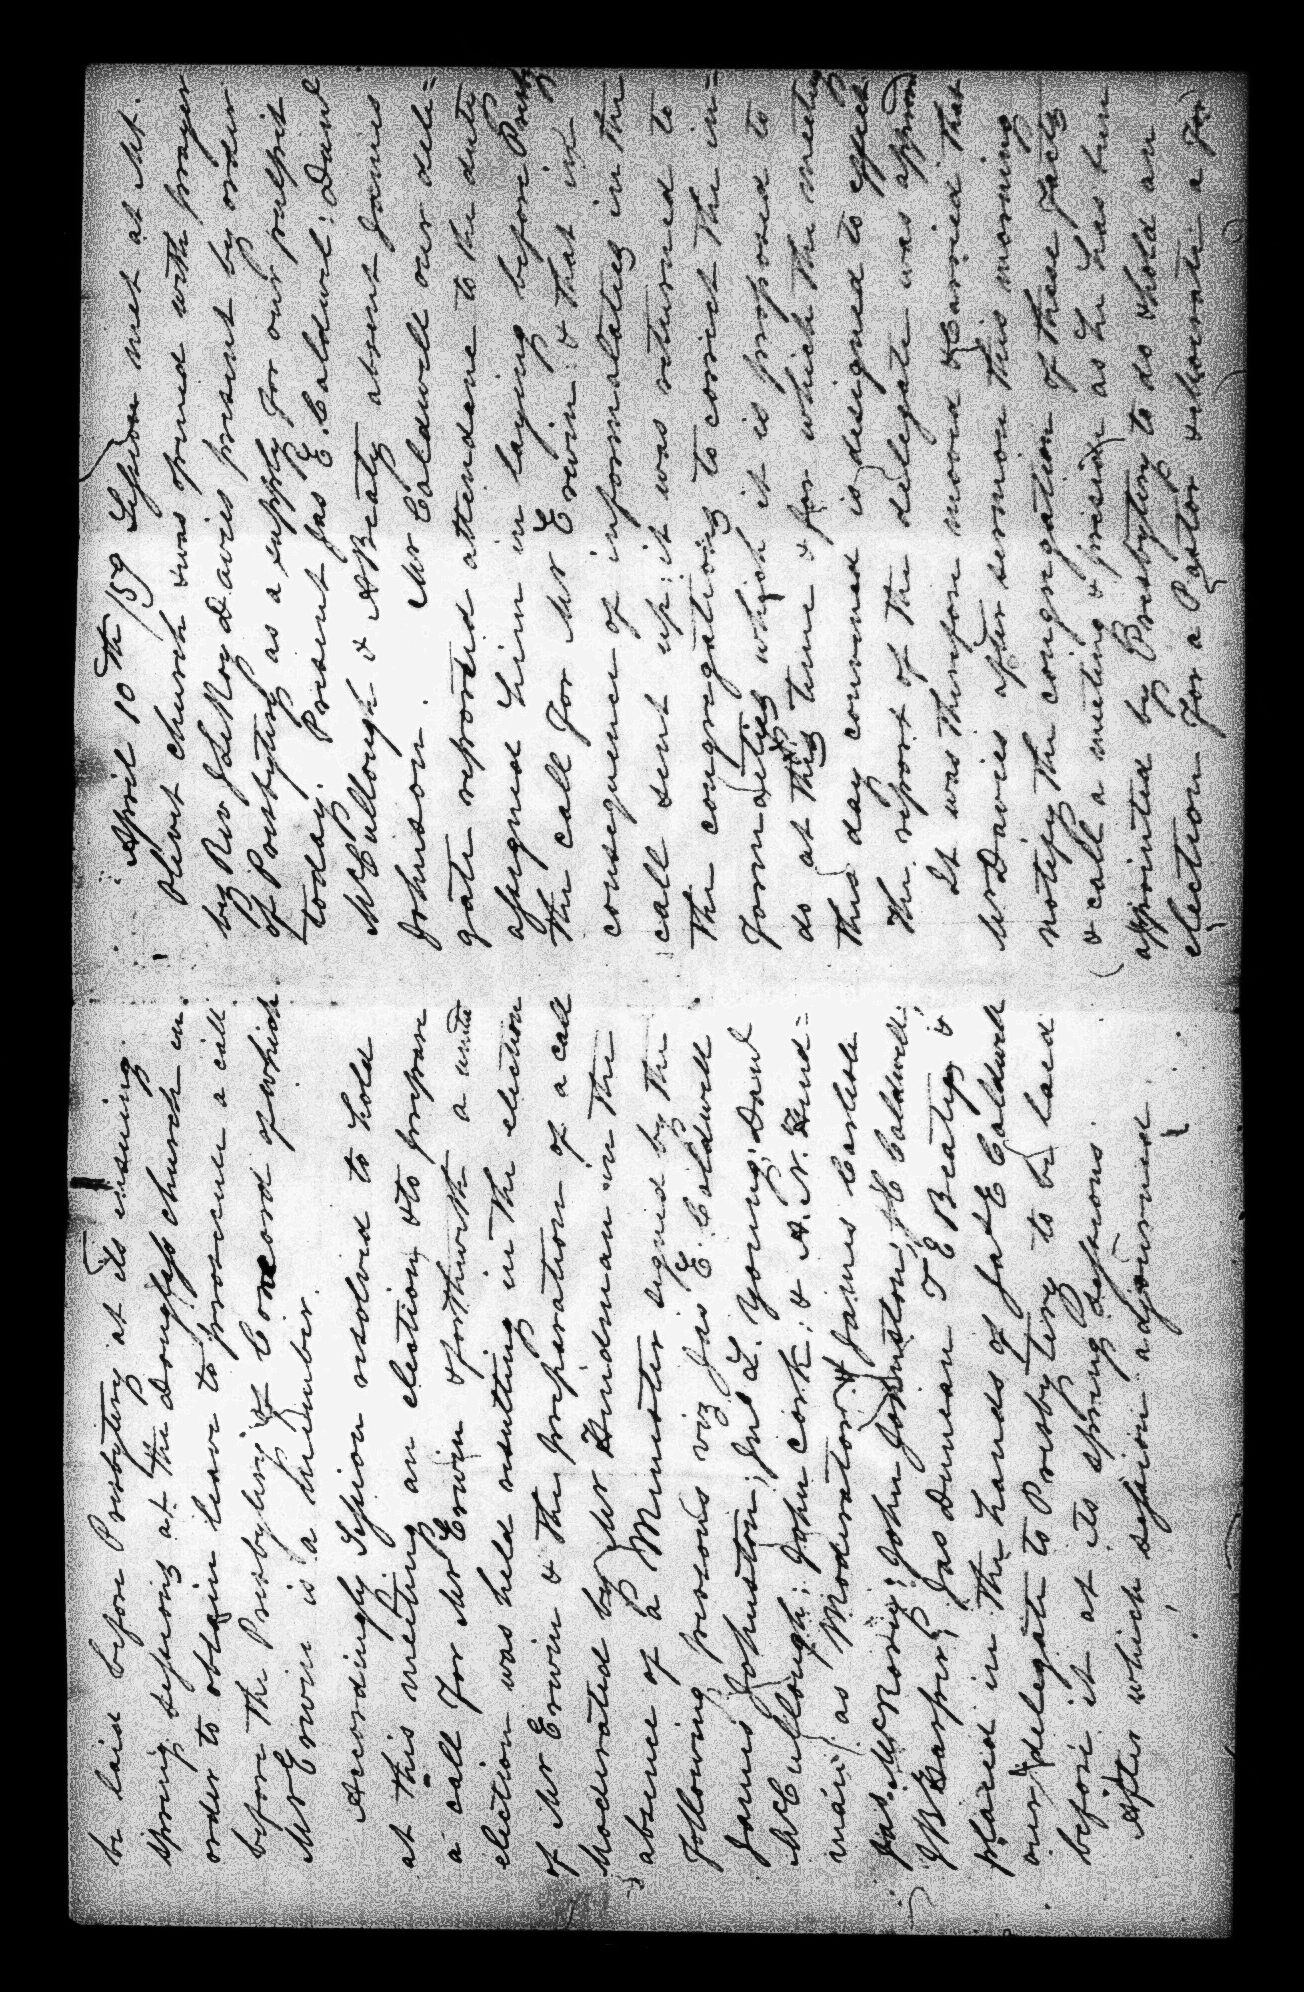 be laid before Presbytery at its ensuing
spring sessions at the Douglass church in
order to obtain leave to prosecute a call
before the Presbytery of Concord of which
Mr Erwin is a member.
Accordingly Session resolved to hold
at this meeting an election & to prepare
a call for Mr Erwin & forthwith a unite
election was held resulting in the election
of Mr Erwin & the preparation of a call
Moderated by Mr Hindman in the
absence of a Minister signed by the
following persons viz Jas E. Caldwell
James Johnston; Jno L. Young; Danl
McCullough; John Cork; & A. N. Hind=
man as Moderator & James Carlile
Jas. McCrorey; John Johnston; J C Caldwell;
J B Harper; Jas Duncan T E Beaty; &
placed in the hands of Jas E Caldwell
our delegate to Presbytery to be laced
before it at its spring sessions.
After which session adjourned
April 10th /59 Session met at Mt.
Olivet church & was opened with prayer
by Rev J LeRoy Davies present by order
of Presbytery as a supply for our pulpit
today. Present Jas E. Caldwell; Danl
McCullough & A Beaty absent James
Johnson. Mr Caldwell our dele=
gate reported attendance to the duty
assigned him in laying before Presby
the call for Mr Erwin & that in
consequence of informalities in the
call sent up; it was returned to
the congregation to correct the in=
formalities which it is proposed to
do at this time & for which the meeting
this day convened is designed to effect
The report of the delegate was approved
It was therefore moved & carried that
Mr Davies after sermon this morning
notify the congregation of these facts
& call a meeting & preside as he has been
appointed by Presbytery to do & hold an
election for a Pastor & moderate a for